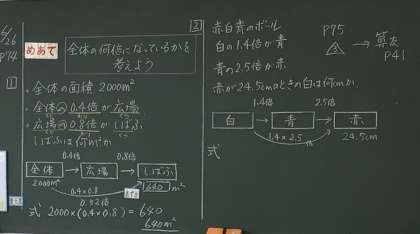 6/26
P74
めあて
全体の何倍になっているかを
考えよう
1
・全体の面積 2000m²
・全体の0.4倍が広場
・広場の0.8倍がしばふ
しばふは何m²か
0.4倍 0.8倍
全体 → 広場 → しばふ
2000m² 640m²
0.4×0.8
0.32倍
式 2000×(0.4×0.8)=640
640m²
2
赤白青のボール
白の1.4倍が青
青の2.5倍が赤
赤が24.5cmのときの白は何cmか
1.4倍 2.5倍
白 → 青 → 赤
1.4×2.5倍 24.5cm
式
P75
→ 算友
P41